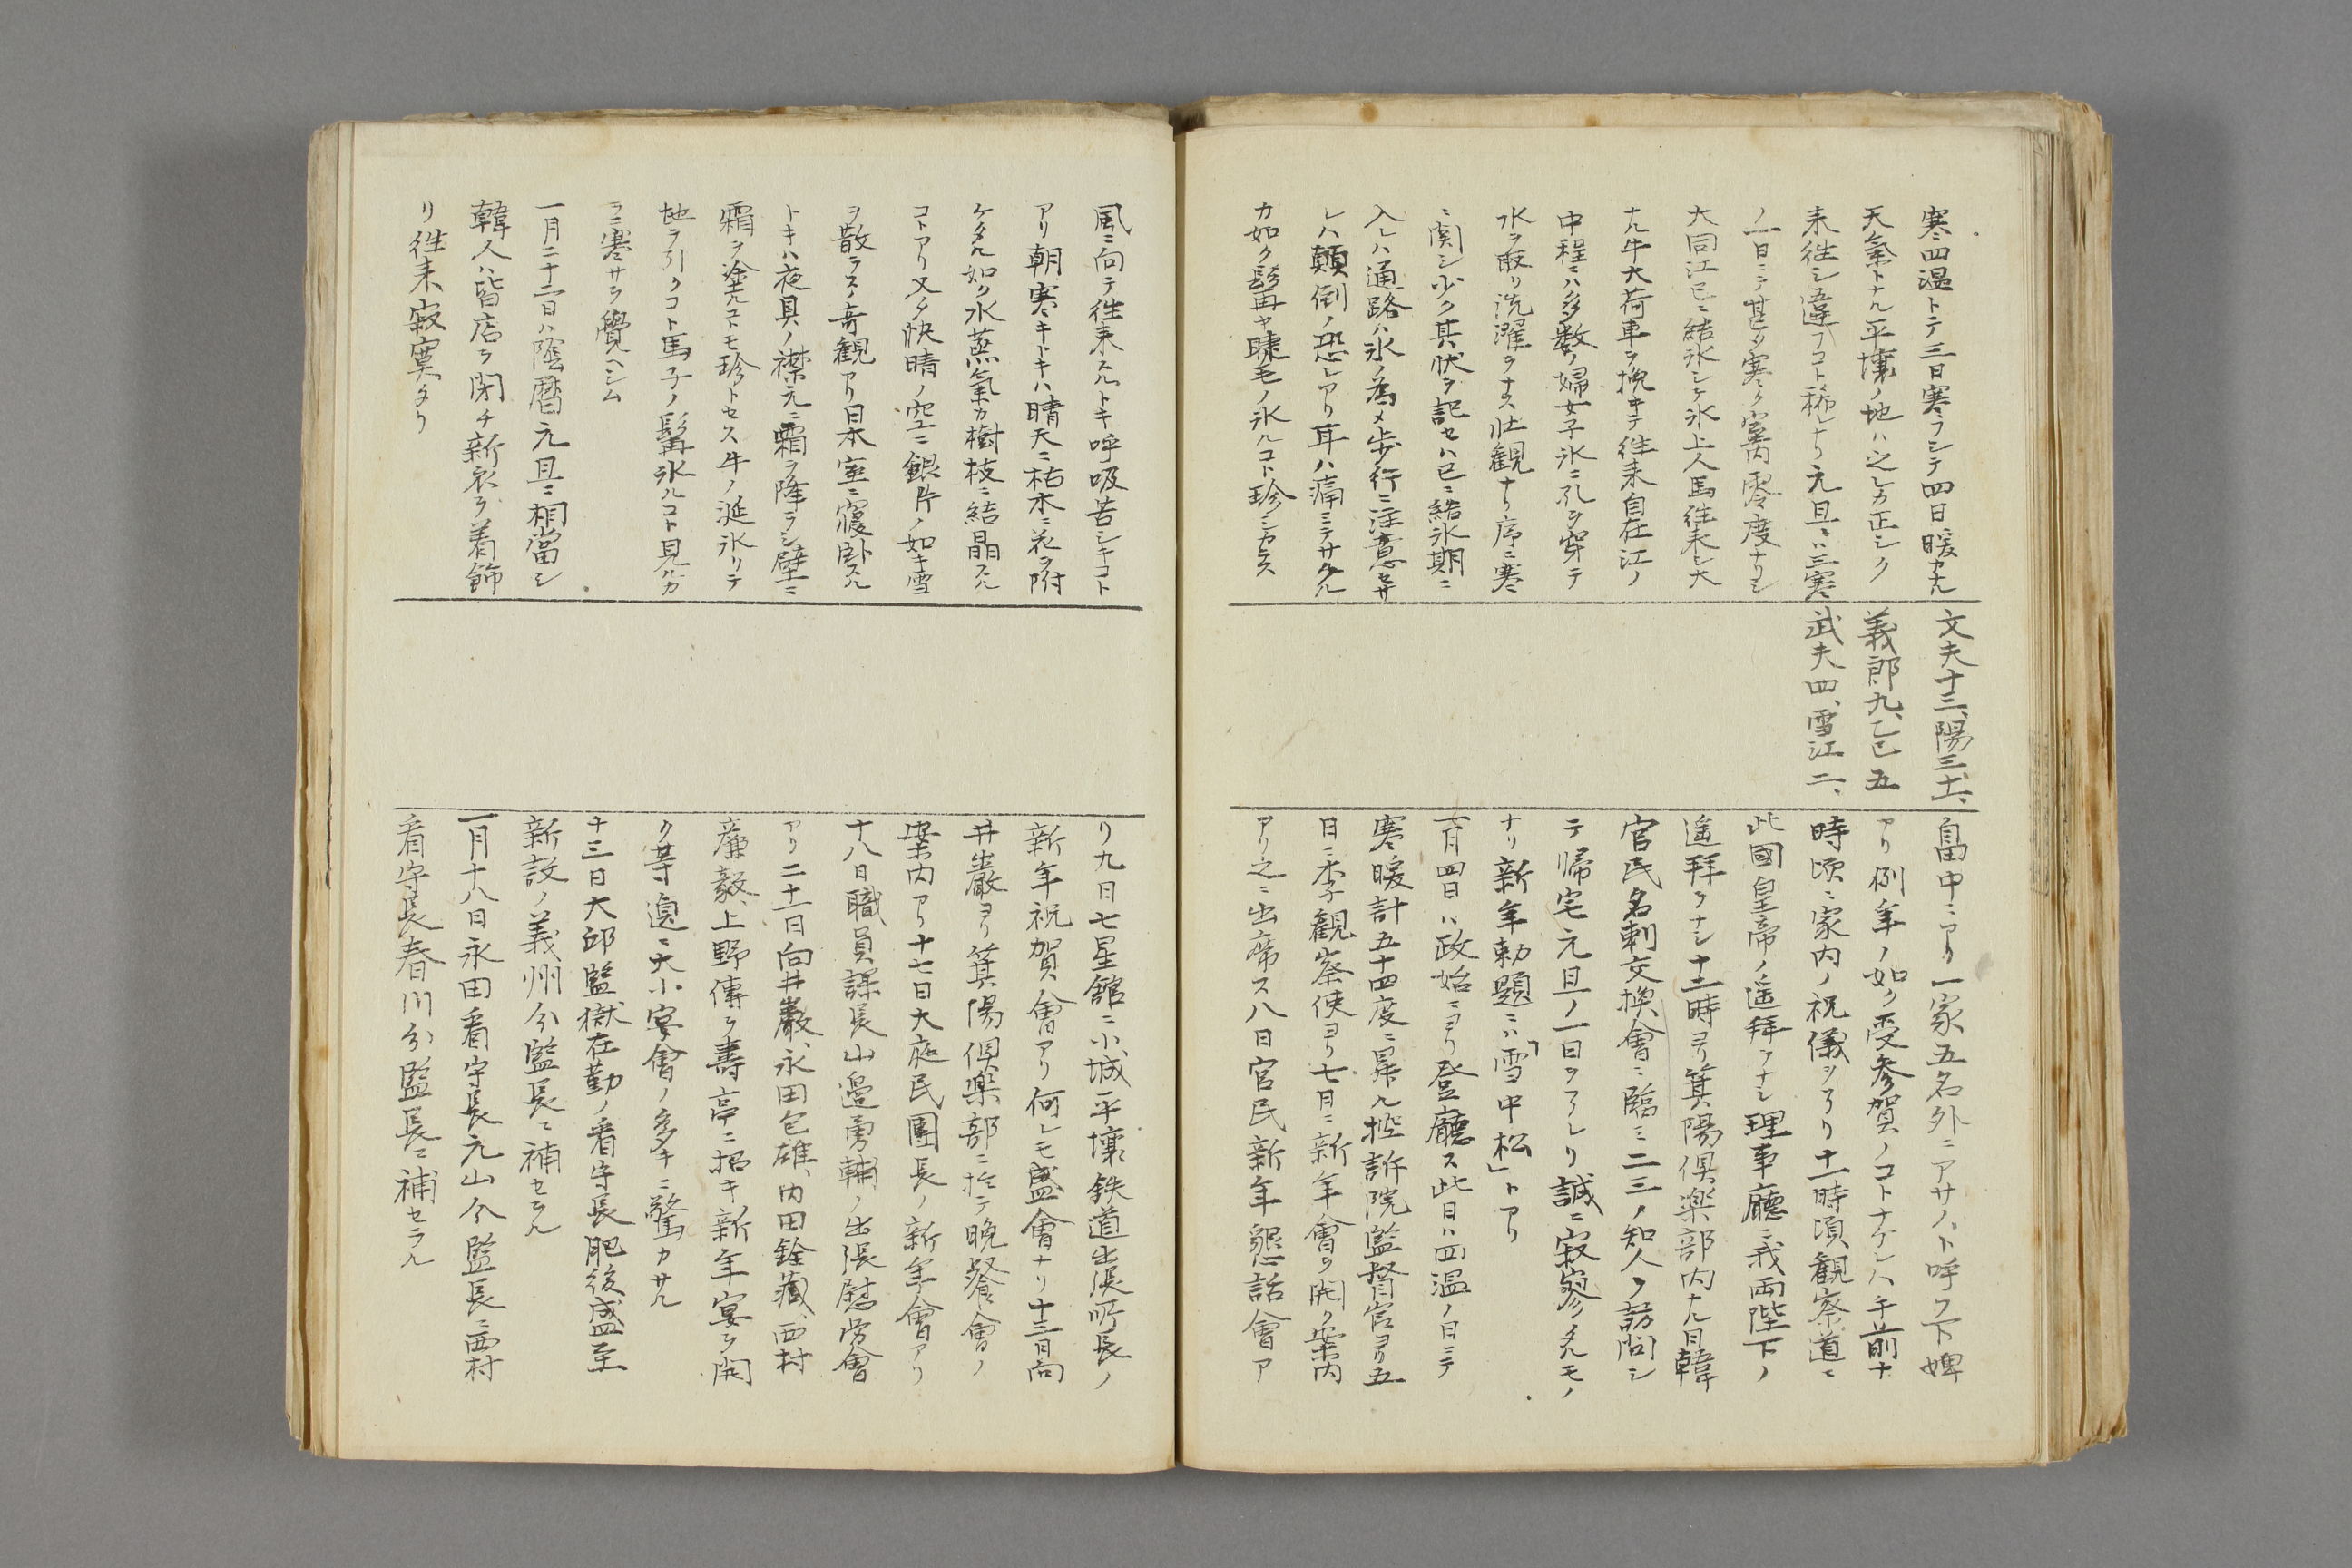 寒四温トテ三日寒フシテ四日暖カナル
天氣トナル平壤ノ地ハ之レカ正シク
来往シ違フコト稀レナリ元旦ハ三寒
ノ一日ニテ甚タ寒ク室内零度ナリシ
大同江已ニ結氷シテ氷上人馬往来シ大
ナル牛大荷車ヲ挽キテ往来自在江ノ
中程ニハ多数ノ婦女子氷ニ孔ヲ穿テ
水ヲ取リ洗濯ヲナス壮観ナリ序ニ寒
ニ関シ少ク其状ヲ記セハ已ニ結氷期ニ
入レハ通路ハ氷ノ為メ歩行ニ注意セサ
レハ顛倒ノ恐レアリ耳ハ痛ミテサケル
カ如ク髯ヤ睫毛ノ氷ルコト珍シカラス
文夫十三、陽三十、
義郎九、乙已五
武夫四、雪江二、
畠中ニアリ一家五名外ニアサノト呼フ下婢
アリ例年ノ如ク受参賀ノコトナケレハ午前十
時頃ニ家内ノ祝儀ヲアリ十一時頃観察道ニ
此國皇帝ノ遥拜ヲナシ理事廳ニ我両陛下ノ
遥拜ヲナシ十二時ヨリ箕陽倶楽部内ナル日韓
官民名刺交換會ニ臨ミ二三ノ知人ヲ訪問シ
テ帰宅元旦ノ一日ヲアレリ誠ニ寂寥タルモノ
ナリ新年勅題ニハ「雪中松」トアリ
一月四日ハ政始ニヨリ登廳ス此日ハ四温ノ日ニテ
寒暖計五十四度ニ昇ル控訴院監督官ヨリ五
日ニ李観察使ヨリ七日ニ新年會ヲ開ク案内
アリ之ニ出席ス八日官民新年懇話會ア
風ニ向テ往来スルトキ呼吸苦シキコト
アリ朝寒キトキハ晴天ニ枯木ニ花ヲ附
ケタル如ク水蒸氣カ樹枝ニ結晶スル
コトアリ又タ快晴ノ空ニ銀片ノ如キ雪
ヲ散ラスノ奇観アリ日本室ニ寝臥スル
トキハ夜具ノ襟元ニ霜ヲ降ラシ壁ニ
霜ヲ塗ルコトモ珍トセス牛ノ涎氷リテ
地ヲ引クコト馬子ノ髯氷ルコト見ルカ
ラニ寒サヲ覺ヘシム
一月二十二日ハ陰暦元旦ニ相當シ
韓人ハ皆店ヲ閉チ新衣ヲ着飾
リ往来寂寞タリ
リ九日七星舘ニ小城平壤鉄道出張所長ノ
新年祝賀會アリ何レモ盛會ナリ十三日向
井巌ヨリ箕陽倶楽部ニ於テ晩餐會ノ
案内アリ十七日大庭民團長ノ新年會アリ
十八日職員課長山邉勇輔ノ出張慰労會
アリ二十一日向井巌、永田包雄、内田銓藏、西村
廉毅、上野傳ヲ壽亭ニ招キ新年宴ヲ開
ク等邉ニ大小宴會ノ多キニ驚カサル
十三日大邱監獄在勤ノ看守長肥後盛至
新設ノ義州分監長ニ補セラル
一月十八日永田看守長元山分監長ニ西村
看守長春川分監長ニ補セラル